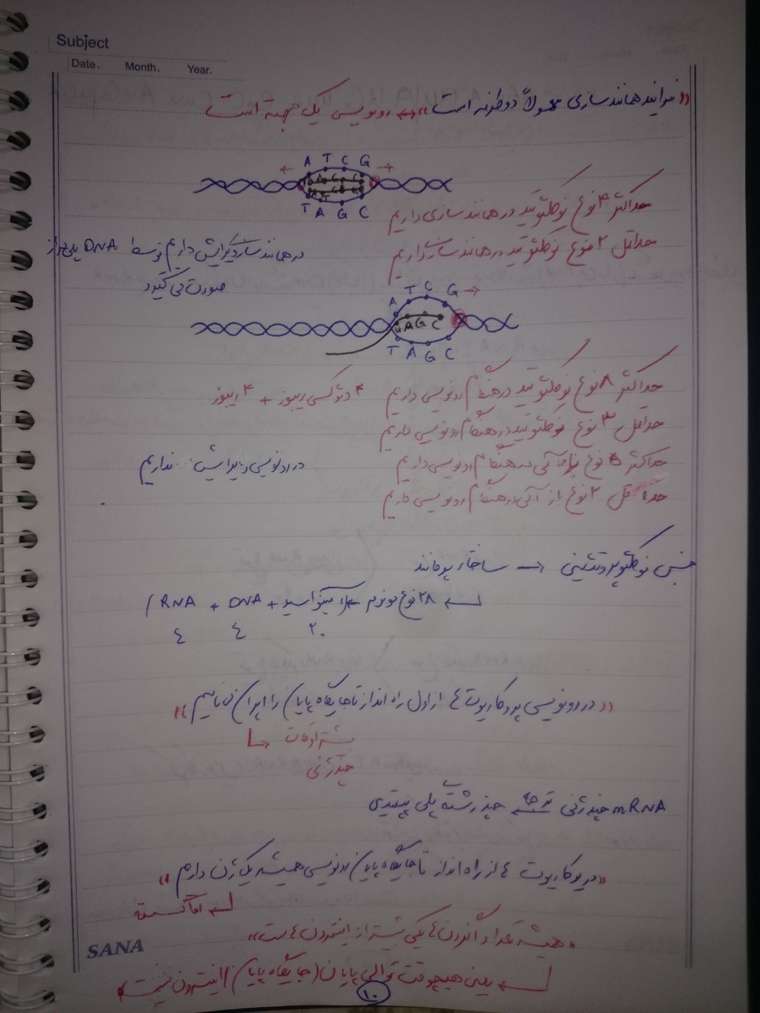 Subject
Date. Month. Year.
«فرایند همانندسازی معمولاً دوطرفه است» رونویسی یک جهته است
A T C G
T A G C
حداکثر ۴ نوع نوکلئوتید در همانندسازی داریم
حداقل ۲ نوع نوکلئوتید در همانندسازی داریم
در همانندسازی ویرایش داریم توسط DNA پلی‌مراز
صورت می‌گیرد
A T C G
U A G C
T A G C
حداکثر ۸ نوع نوکلئوتید در هنگام رونویسی داریم ۴ دئوکسی ریبوز + ۴ ریبوز
حداقل ۳ نوع نوکلئوتید در هنگام رونویسی داریم
حداکثر ۵ نوع باز آلی در هنگام رونویسی داریم
در رونویسی ویرایش نداریم
حداقل ۲ نوع باز آلی در هنگام رونویسی داریم
جنس نوکلئوپروتئینی → ساختار
۲۸ نوع مونومر ← (آمینواسید + DNA + RNA)
۲۰ ٤ ٤
«در رونویسی پروکاریوت ها از اول راه انداز تا جایگاه پایان را اپران می نامیم»
چند ژنی
mRNA چند ژنی ترجمه چند رشته پلی پپتیدی
«در یوکاریوت ها از راه انداز تا جایگاه پایان رونویسی همیشه یک ژن داریم»
اما گسسته
«همیشه تعداد اگزون ها یکی بیشتر از اینترون هاست»
یعنی هیچوقت توالی پایان (جایگاه پایان) اینترون نیست
SANA
۱۰